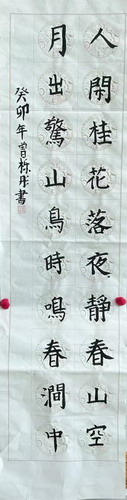 人閑桂花落夜靜春山空
月出驚山鳥時鳴春澗中
癸卯年曾栐彤書